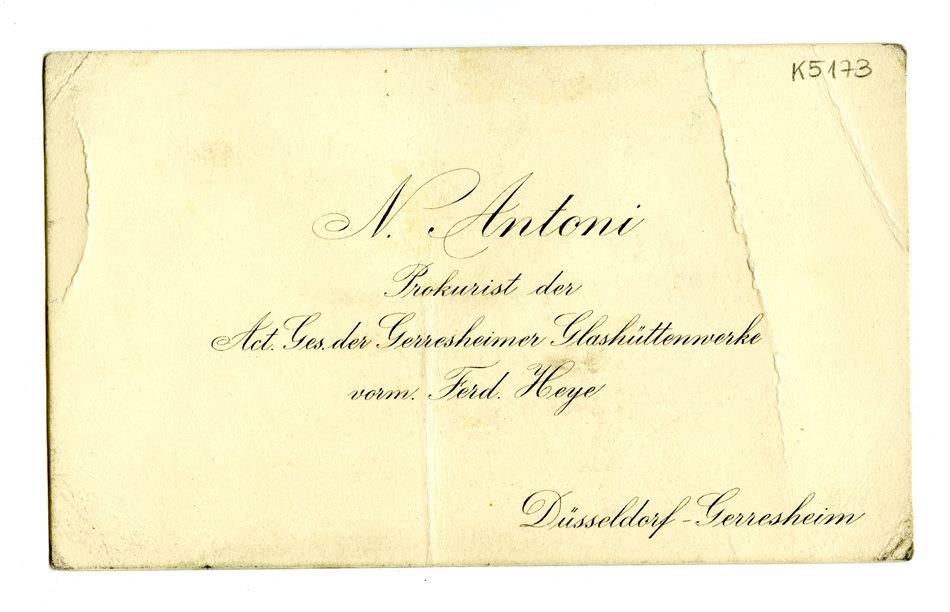 K5173
N. Antoni
Prokurist der
Act. Ges. der Gerresheimer Glashüttenwerke
vorm. Ferd. Heye
Düsseldorf-Gerresheim